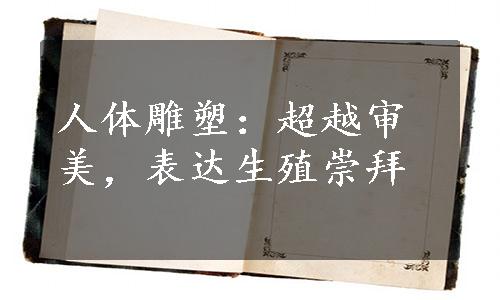 人体雕塑：超越审
美，表达生殖崇拜